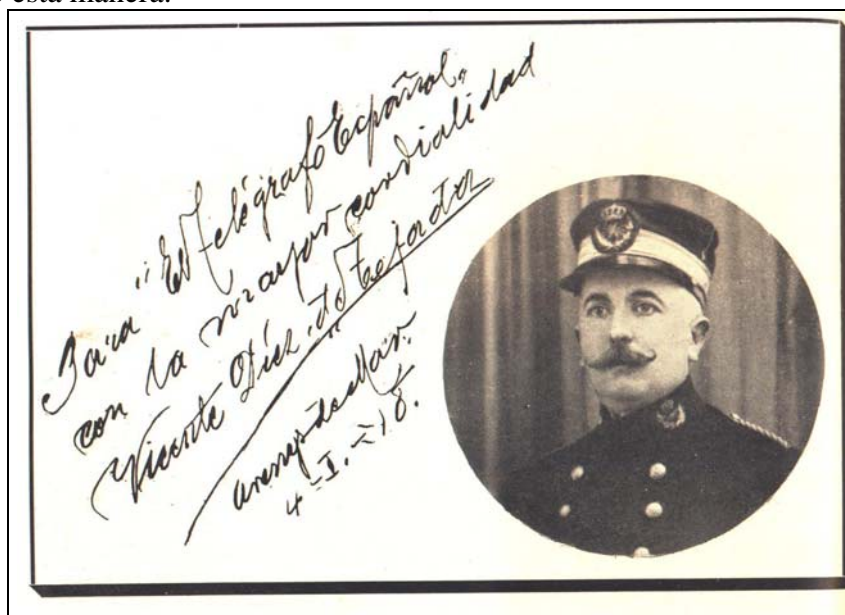 esta manera:
Para "El Telégrafo Español"
con la mayor cordialidad
Vicente Díez de Tejada
Arenys de Mar.
4-I-18.